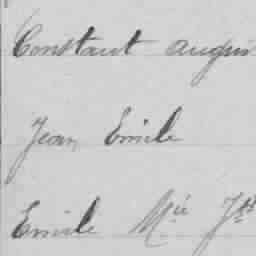 Constant Augus
Jean Emile
Emile Mie Jh